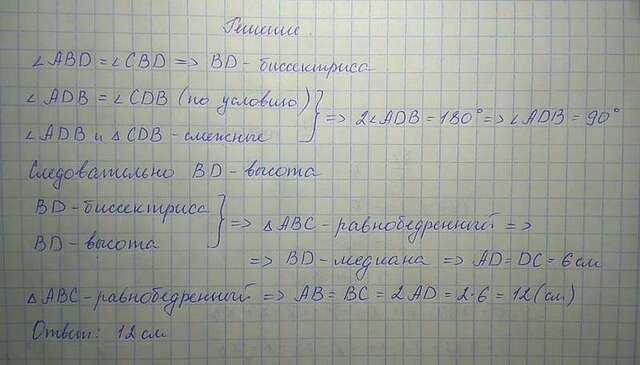 Решение.
∠ABD = ∠CBD => BD - биссектриса
∠ADB = ∠CDB (по условию)
∠ADB и △CDB - смежные
} => 2∠ADB = 180° => ∠ADB = 90°
Следовательно BD - высота
BD - биссектриса
BD - высота
} => △ABC - равнобедренный =>
=> BD - медиана => AD = DC = 6 см
△ABC - равнобедренный => AB = BC = 2AD = 2·6 = 12 (см)
Ответ: 12 см